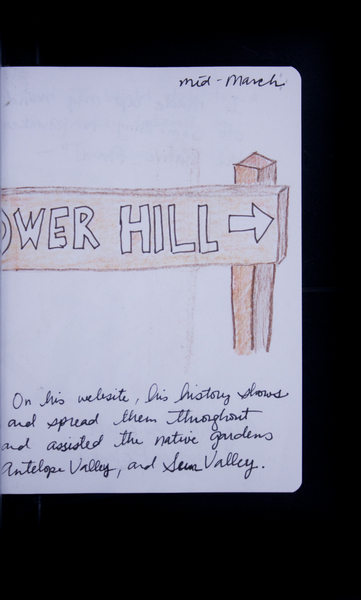 mid-March
OWER HILL
On his website, his history shows
and spread them throughout
and assisted the native gardens
Antelope Valley, and Sun Valley.